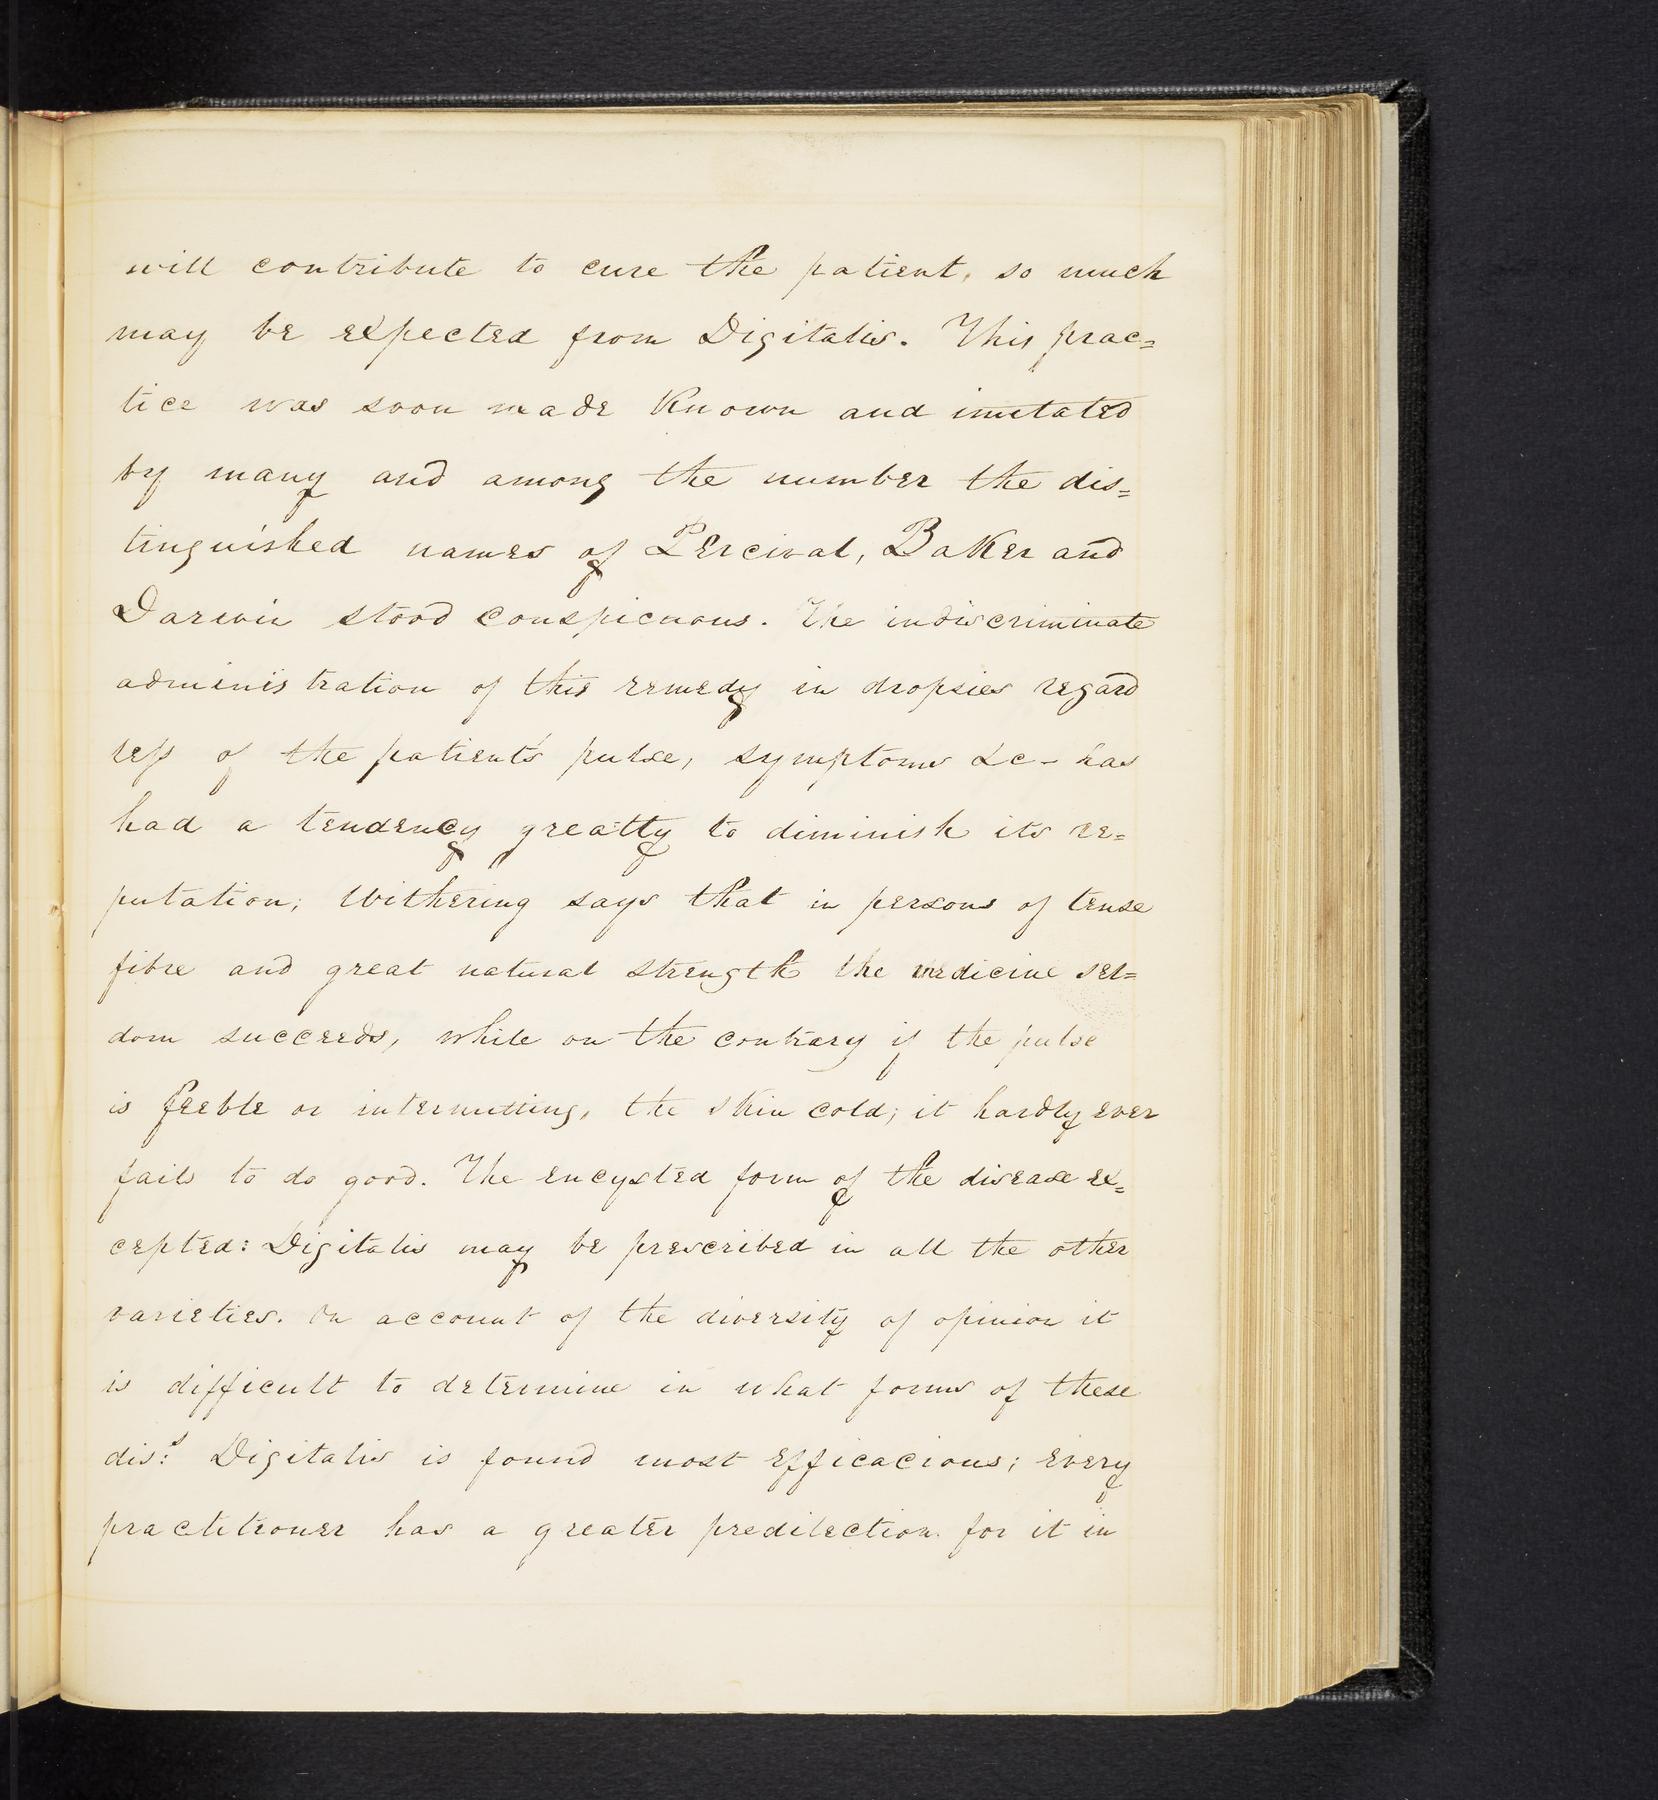 will contribute to cure the patient, so much
may be expected from Digitalis. This prac=
tice was soon made Known and imitated
by many and among the number the dis=
tinguished names of Percival, Baker and
Darwin stood conspicuous. The indiscriminate
administration of this remedy in dropsies regard
less of the patient's pulse, symptoms &c - has
had a tendency greatly to diminish its re=
putation; Withering says that in persons of tense
fibre and great natural strength the medicine sel=
dom succeeds, while on the contrary if the pulse
is feeble or intermitting, the skin cold; it hardly ever
fails to do good. The encysted form of the disease ex=
cepted: Digitalis may be prescribed in all the other
varieties. On account of the diversity of opinion it
is difficult to determine in what forms of these
dis:s Digitalis is found most efficacious; every
practitioner has a greater predilection for it in